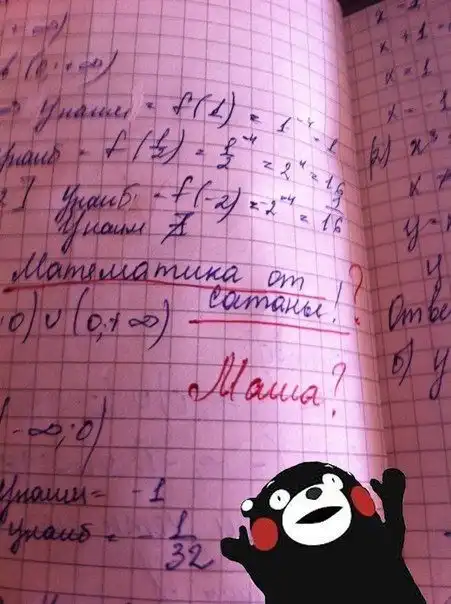 +∞)
(0; +∞)
yнаим = f(1) = 1⁻⁴ = 1
yнаиб = f(1/2) = 1/2⁻⁴ = 2⁴ = 16
yнаиб = f(-2) = 2⁻⁴ = 1/16
yнаим
Математика от
сатаны! ?
0) ∪ (0; +∞)
Маша?
(-∞; 0)
yнаим = -1
yнаиб = -1/32
x - 1
x + 1
x = 1
x = -1
x³
x
y =
y
Отве
б) y